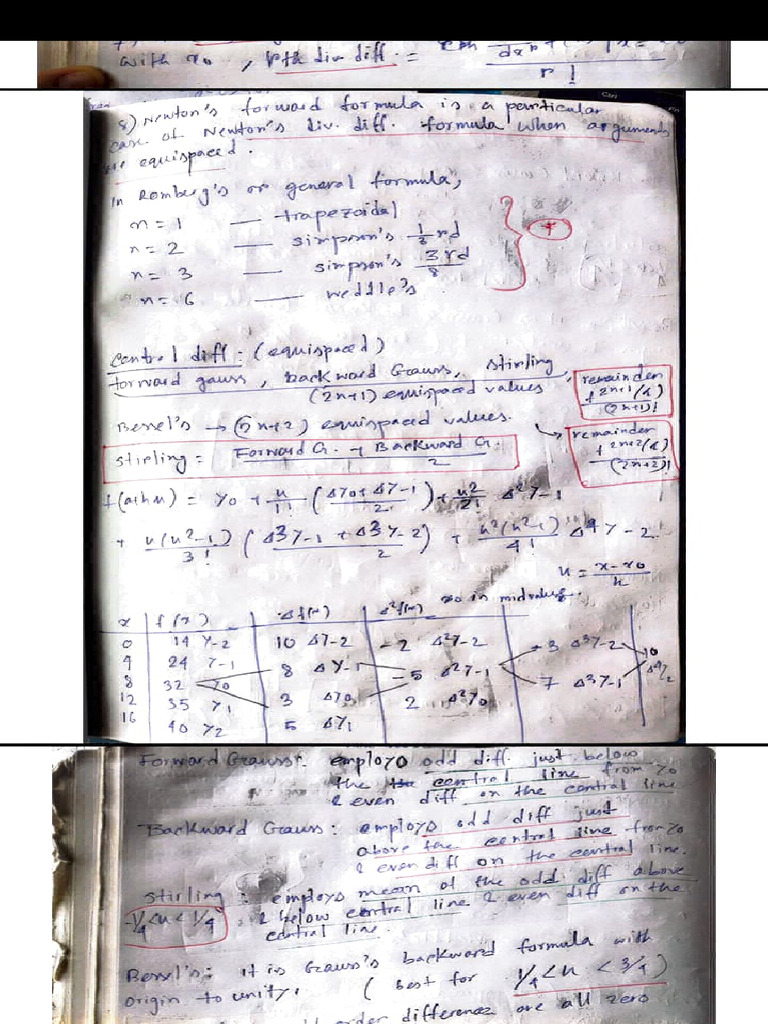 with x0, pth div diff. =
r!
8) Newton's forward formula is a particular
case of Newton's div. diff. formula when arguments
are equispaced.
In Romberg's or general formula,
n = 1 — trapezoidal
n = 2 — simpson's 1/3 rd
n = 3 — simpson's 3/8 rd
n = 6 — weddle's
Central diff: (equispaced)
forward gauss, backward Gauss, stirling,
(2n+1) equispaced values
remainder
f 2n+1(x)
(2n+1)!
Bessel's → (2n+2) equispaced values.
remainder
f 2n+2(x)
(2n+2)!
stirling = Forward G. + Backward G. / 2
f(a+hu) = y0 + u/1! (Δy0 + Δy-1 / 2) + u²/2! Δ²y-1
+ u(u²-1)/3! (Δ3y-1 + Δ3y-2 / 2) + u²(u²-1)/4! Δ4y-2
u = x-x0 / h
x0 in midvalue.
x f(x) Δf(x) Δ²f(x)
0 14 y-2 10 Δy-2 -2 Δ²y-2 -3 Δ3y-2 10 Δ4y-2
4 24 y-1 8 Δy-1 -5 Δ²y-1 7 Δ3y-1
8 32 y0 3 Δy0 2 Δ²y0
12 35 y1 5 Δy1
16 40 y2
Forward Gauss: employs odd diff. just below
the central line from y0
& even diff on the central line
Backward Gauss: employs odd diff just
above the central line from y0
& even diff on the central line.
stirling: employs mean of the odd diff above
-1/4<u<1/4 & below central line & even diff on the
central line.
Bessel's: it is Gauss's backward formula with
origin to unity. (best for 1/4<u<3/4)
order differences are all zero